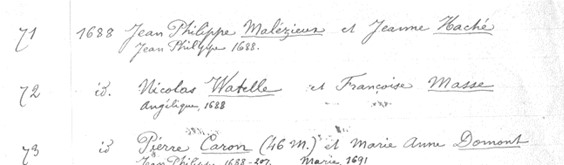 71 1688 Jean Philippe Malézieux et Jeanne Haché
Jean Philippe 1688.
72 id. Nicolas Watelle et Francoise Masse
Angélique, 1688
73 id Pierre Caron (46 M.) et Marie Anne Domont
Jean Philippe 1688 Marie 1691